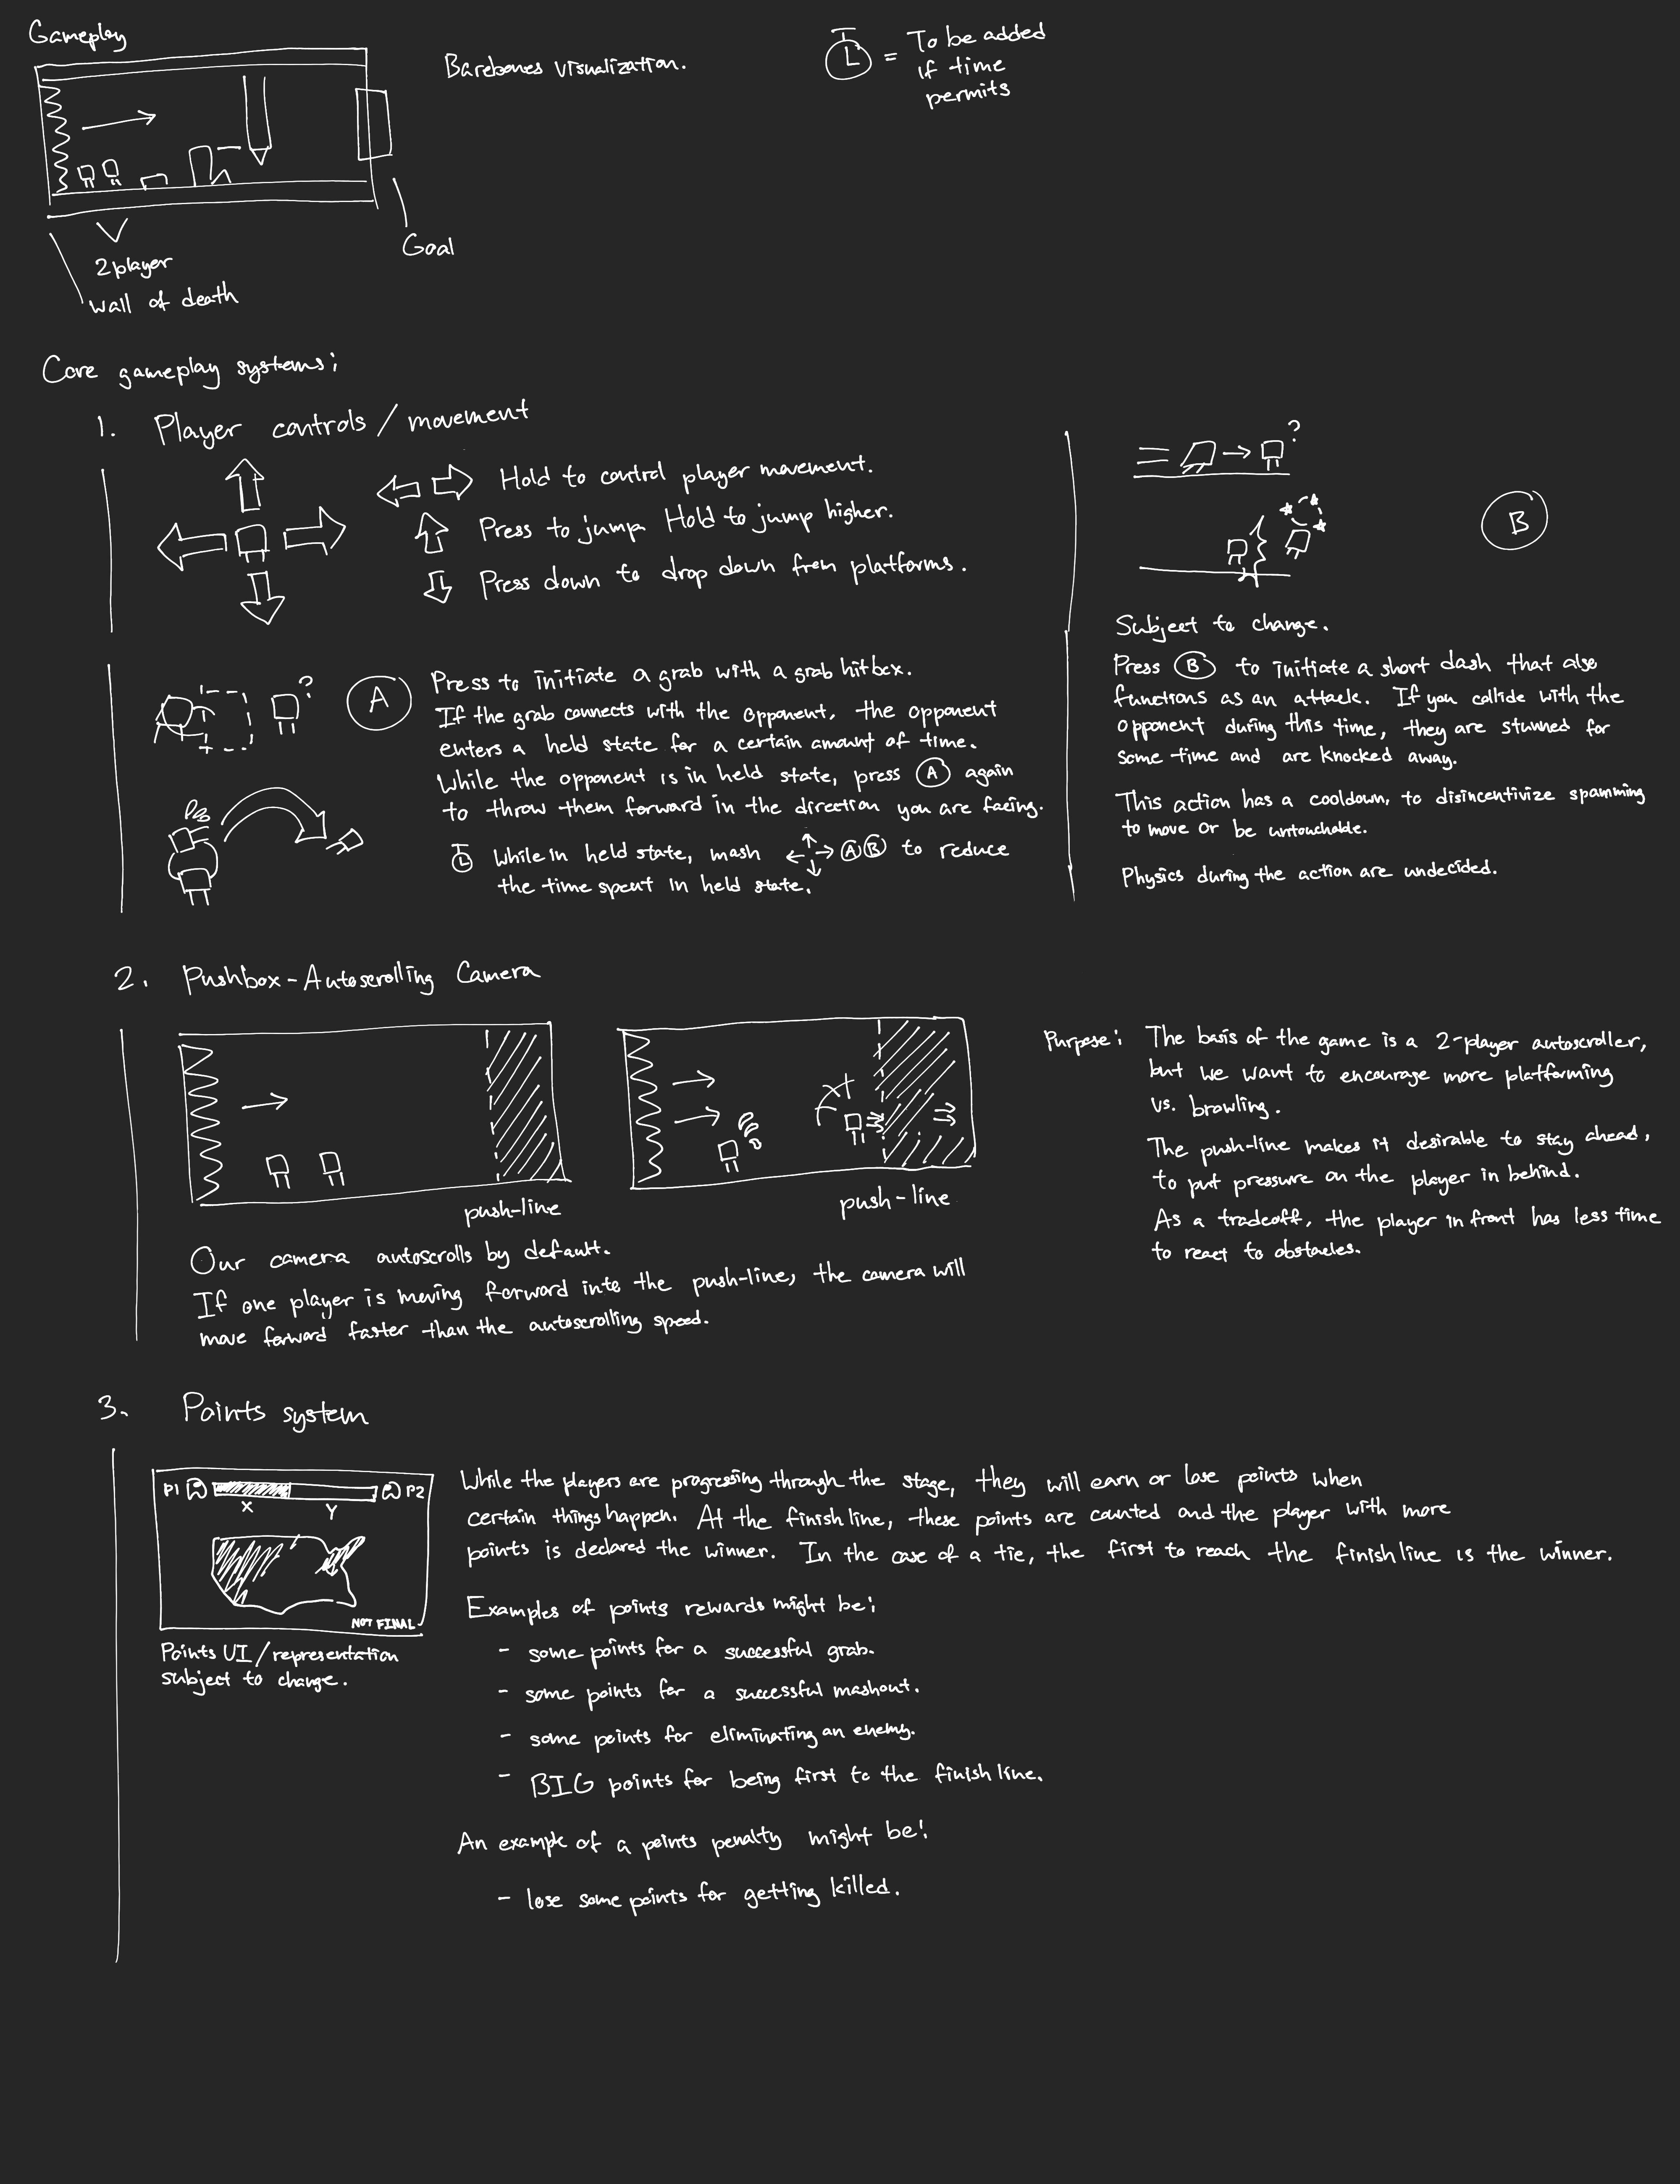 Gameplay
Barebones visualization.
L = To be added
if time
permits
Goal
2player
wall of death
Core gameplay systems:
1. Player controls / movement
Hold to control player movement.
Press to jump. Hold to jump higher.
Press down to drop down from platforms.
?
A
Press to initiate a grab with a grab hitbox.
If the grab connects with the opponent, the opponent
enters a held state for a certain amount of time.
While the opponent is in held state, press A again
to throw them forward in the direction you are facing.
While in held state, mash A B to reduce
the time spent in held state.
?
B
Subject to change.
Press B to initiate a short dash that also
functions as an attack. If you collide with the
opponent during this time, they are stunned for
some time and are knocked away.
This action has a cooldown, to disincentivize spamming
to move or be untouchable.
Physics during the action are undecided.
2. Pushbox-Autoscrolling Camera
push-line
push-line
Our camera autoscrolls by default.
If one player is moving forward into the push-line, the camera will
move forward faster than the autoscrolling speed.
Purpose: The basis of the game is a 2-player autoscroller,
but we want to encourage more platforming
vs. browling.
The push-line makes it desirable to stay ahead,
to put pressure on the player in behind.
As a tradeoff, the player in front has less time
to react to obstacles.
3. Points system
P1 P2
X Y
NOT FINAL
Points UI/representation
subject to change.
While the players are progressing through the stage, they will earn or lose points when
certain things happen. At the finish line, these points are counted and the player with more
points is declared the winner. In the case of a tie, the first to reach the finish line is the winner.
Examples of points rewards might be:
- some points for a successful grab.
- some points for a successful mashout.
- some points for eliminating an enemy.
- BIG points for being first to the finish line.
An example of a points penalty might be:
- lose some points for getting killed.